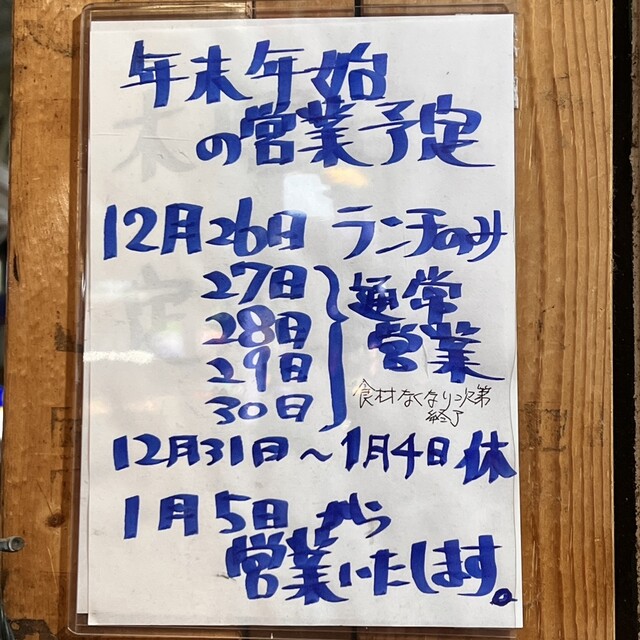 年末年始
の営業予定
12月26日 ランチのみ
27日
28日
29日
30日
通常
営業
食材なくなり次第
終了
12月31日〜1月4日 休
1月5日から
営業いたします。